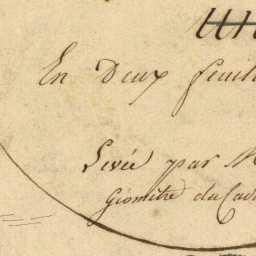 En Deux feuil
Levée par M
Géomètre du Cad